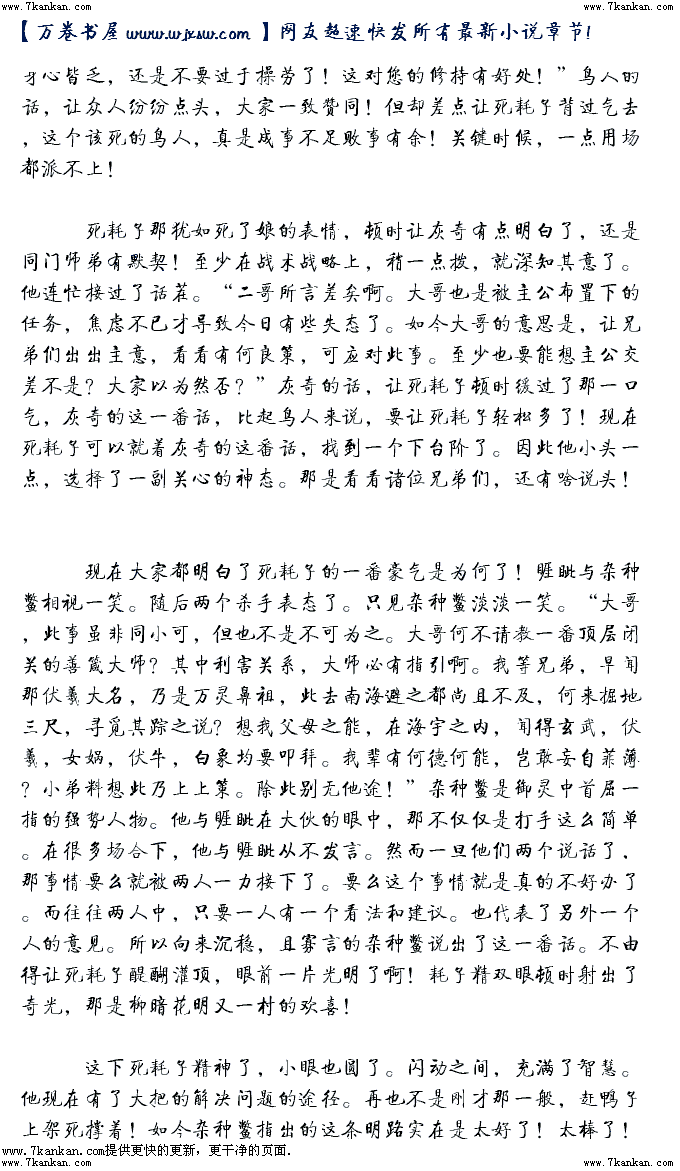 www.7kankan.com www.7kankan.com www.7kankan.com
【万卷书屋 www.wjxsw.com 】网友超速快发所有最新小说章节!
身心皆乏，还是不要过于操劳了！这对您的修持有好处！”鸟人的
话，让众人纷纷点头，大家一致赞同！但却差点让死耗子背过气去
，这个该死的鸟人，真是成事不足败事有余！关键时候，一点用场
都派不上！
死耗子那犹如死了娘的表情，顿时让灰奇有点明白了，还是
同门师弟有默契！至少在战术战略上，稍一点拨，就深知其意了。
他连忙接过了话茬。“二哥所言差矣啊。大哥也是被主公布置下的
任务，焦虑不已才导致今日有些失态了。如今大哥的意思是，让兄
弟们出出主意，看看有何良策，可应对此事。至少也要能想主公交
差不是？大家以为然否？”灰奇的话，让死耗子顿时缓过了那一口
气，灰奇的这一番话，比起鸟人来说，要让死耗子轻松多了！现在
死耗子可以就着灰奇的这番话，找到一个下台阶了。因此他小头一
点，选择了一副关心的神态。那是看看诸位兄弟们，还有啥说头！
现在大家都明白了死耗子的一番豪气是为何了！睚眦与杂种
鳖相视一笑。随后两个杀手表态了。只见杂种鳖淡淡一笑。“大哥
，此事虽非同小可，但也不是不可为之。大哥何不请教一番顶层闭
关的善箴大师？其中利害关系，大师必有指引啊。我等兄弟，早闻
那伏羲大名，乃是万灵鼻祖，此去南海避之都尚且不及，何来掘地
三尺，寻觅其踪之说？想我父母之能，在海宇之内，闻得玄武，伏
羲，女娲，伏牛，白象均要叩拜。我辈有何德何能，岂敢妄自菲薄
？小弟料想此乃上上策。除此别无他途！”杂种鳖是御灵中首屈一
指的强势人物。他与睚眦在大伙的眼中，那不仅仅是打手这么简单
。在很多场合下，他与睚眦从不发言。然而一旦他们两个说话了，
那事情要么就被两人一力接下了。要么这个事情就是真的不好办了
。而往往两人中，只要一人有一个看法和建议。也代表了另外一个
人的意见。所以向来沉稳，且寡言的杂种鳖说出了这一番话。不由
得让死耗子醍醐灌顶，眼前一片光明了啊！耗子精双眼顿时射出了
奇光，那是柳暗花明又一村的欢喜！
这下死耗子精神了，小眼也圆了。闪动之间，充满了智慧。
他现在有了大把的解决问题的途径。再也不是刚才那一般，赶鸭子
上架死撑着！如今杂种鳖指出的这条明路实在是太好了！太棒了！
www.7kankan.com提供更快的更新，更干净的页面.
www.7kankan.com www.7kankan.com www.7kankan.com